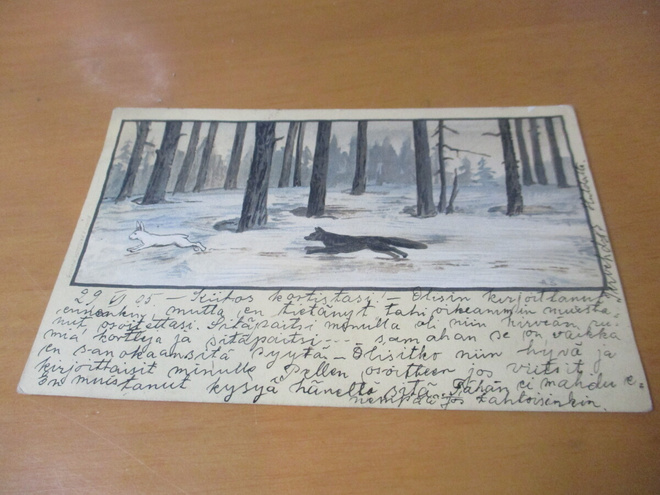 29. VI 05. – Kiitos kortistasi! – Olisin kirjoittanut
ennenkin, mutta en tietänyt, tahi oikeammin muista-
nut osoitettasi. Sitäpaitsi minulla oli niin hirveän ru-
mia kortteja ja sitäpaitsi ---- samahan se on vaikka
en sanokaan sitä syytä. – Olisitko niin hyvä ja
kirjoittaisit minulle osoitteen jos viitsit,
en muistanut kysyä häneltä sitä. Tähän ei mahdu e-
nempää jos tahtoisinkin.